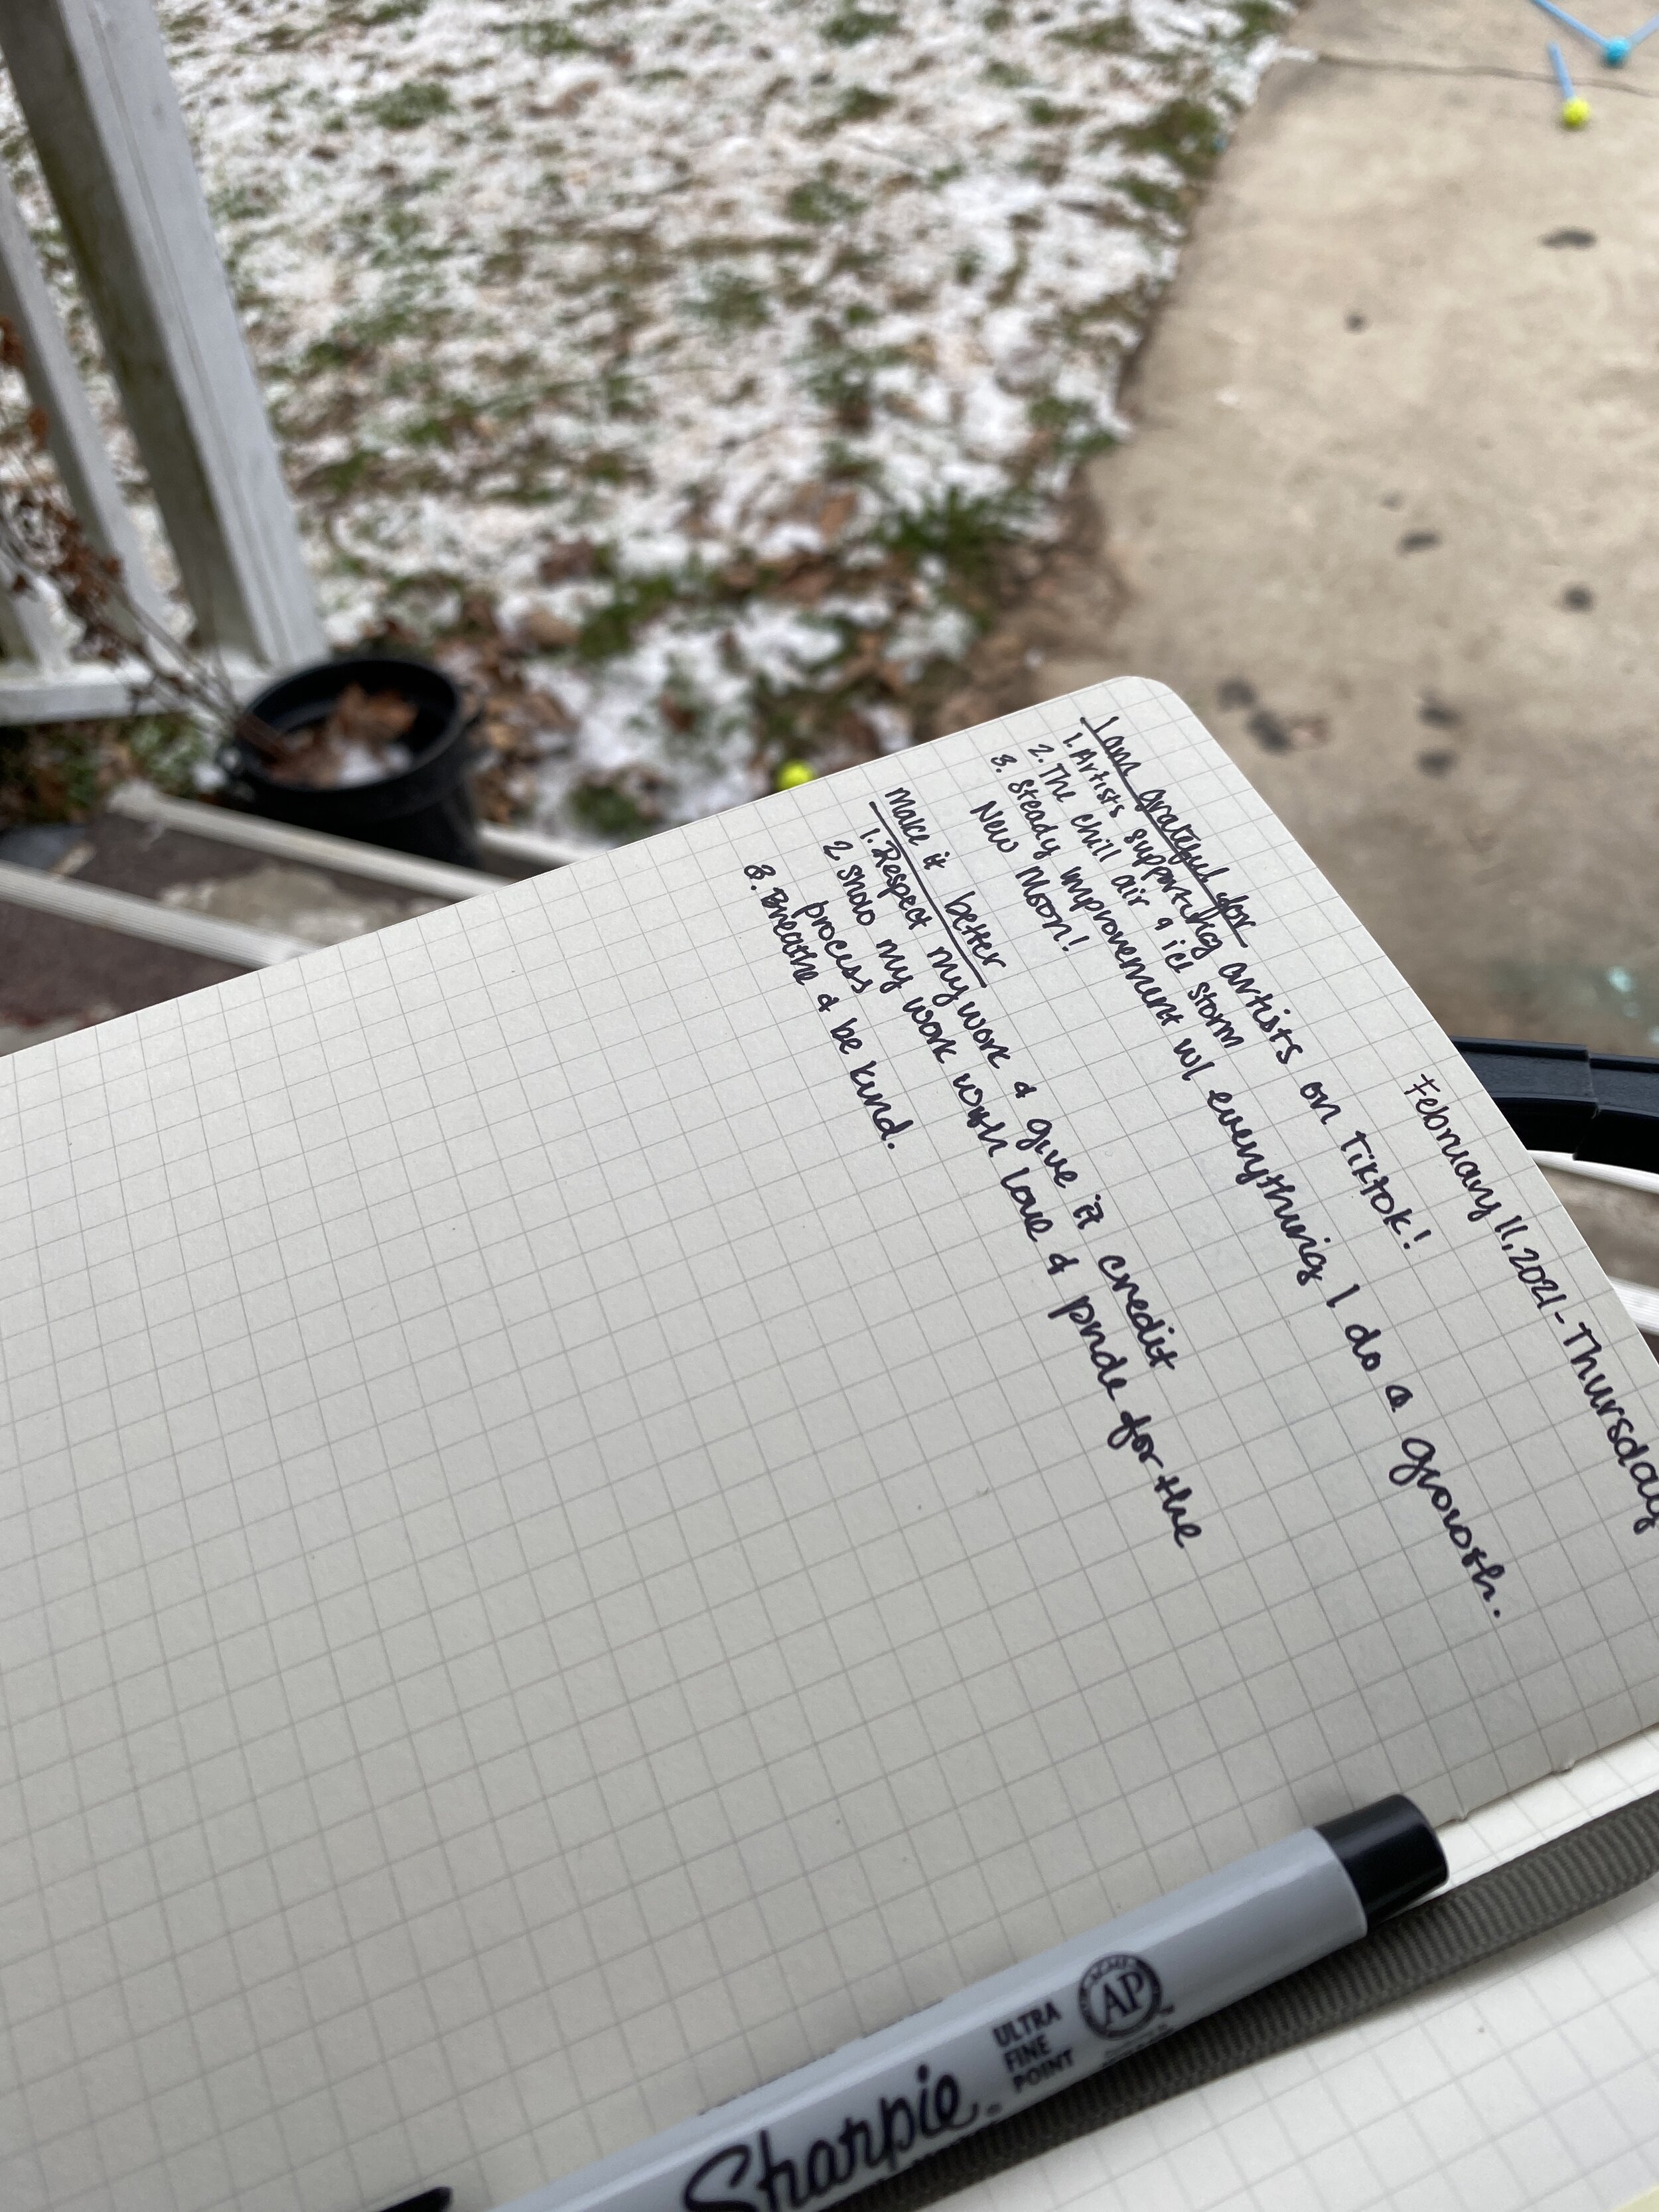 February 11, 2021 - Thursday
I am grateful for
1. Artists supporting artists on TikTok!
2. The chill air & ice storm
3. Steady improvement w/ everything I do & growth.
New Moon!
Make it better
1. Respect my work & give it credit
2 Show my work worth love & pride for the
process
3. Breathe & be kind.
Sharpie®
ULTRA
FINE
POINT
AP